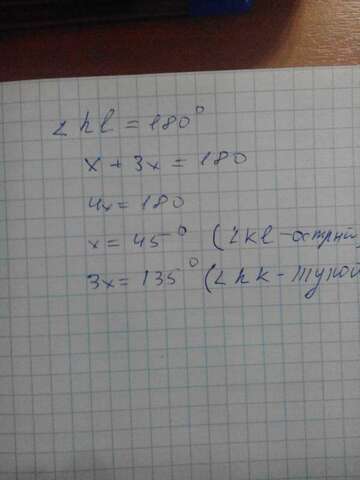 ∠hl = 180°
x + 3x = 180
4x = 180
x = 45° (∠kl - острый
3x = 135° (∠hk - тупой